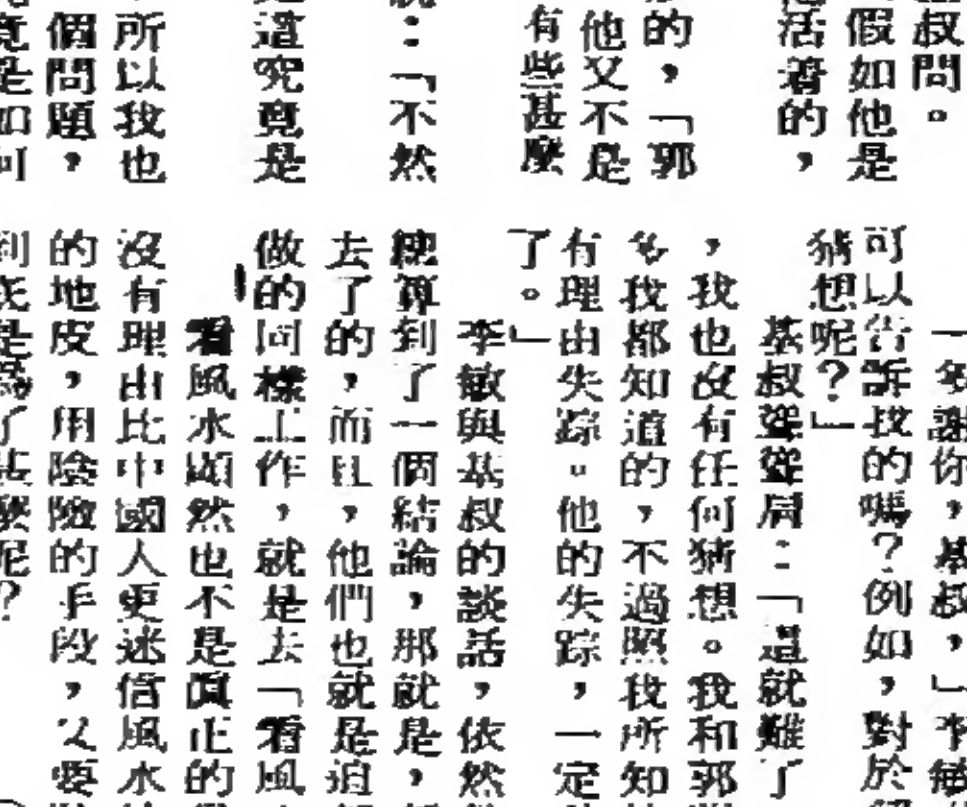 叔問。
假如他是
活着的，
的，「郭
他又不是
有些甚麼
：「不然
這究竟是
所以我也
個問題，
竟是如何
多謝你，基叔，」李敏
可以告訴我的嗎？例如，對於
猜想呢？」
基叔聳聳肩：「這就難了
，我也沒有任何猜想。我和郭
多我都知道的，不過照我所知
有理由失踪。他的失踪，一定
了。」
李敏與基叔的談話，依然
總算到了一個結論，那就是，
去了的，而且，他們也就是追
做的同樣工作，就是去「看風
看風水顯然也不是眞正的
沒有理由比中國人更迷信風水
的地皮，用陰險的手段，又要
到底是爲了甚麼呢？